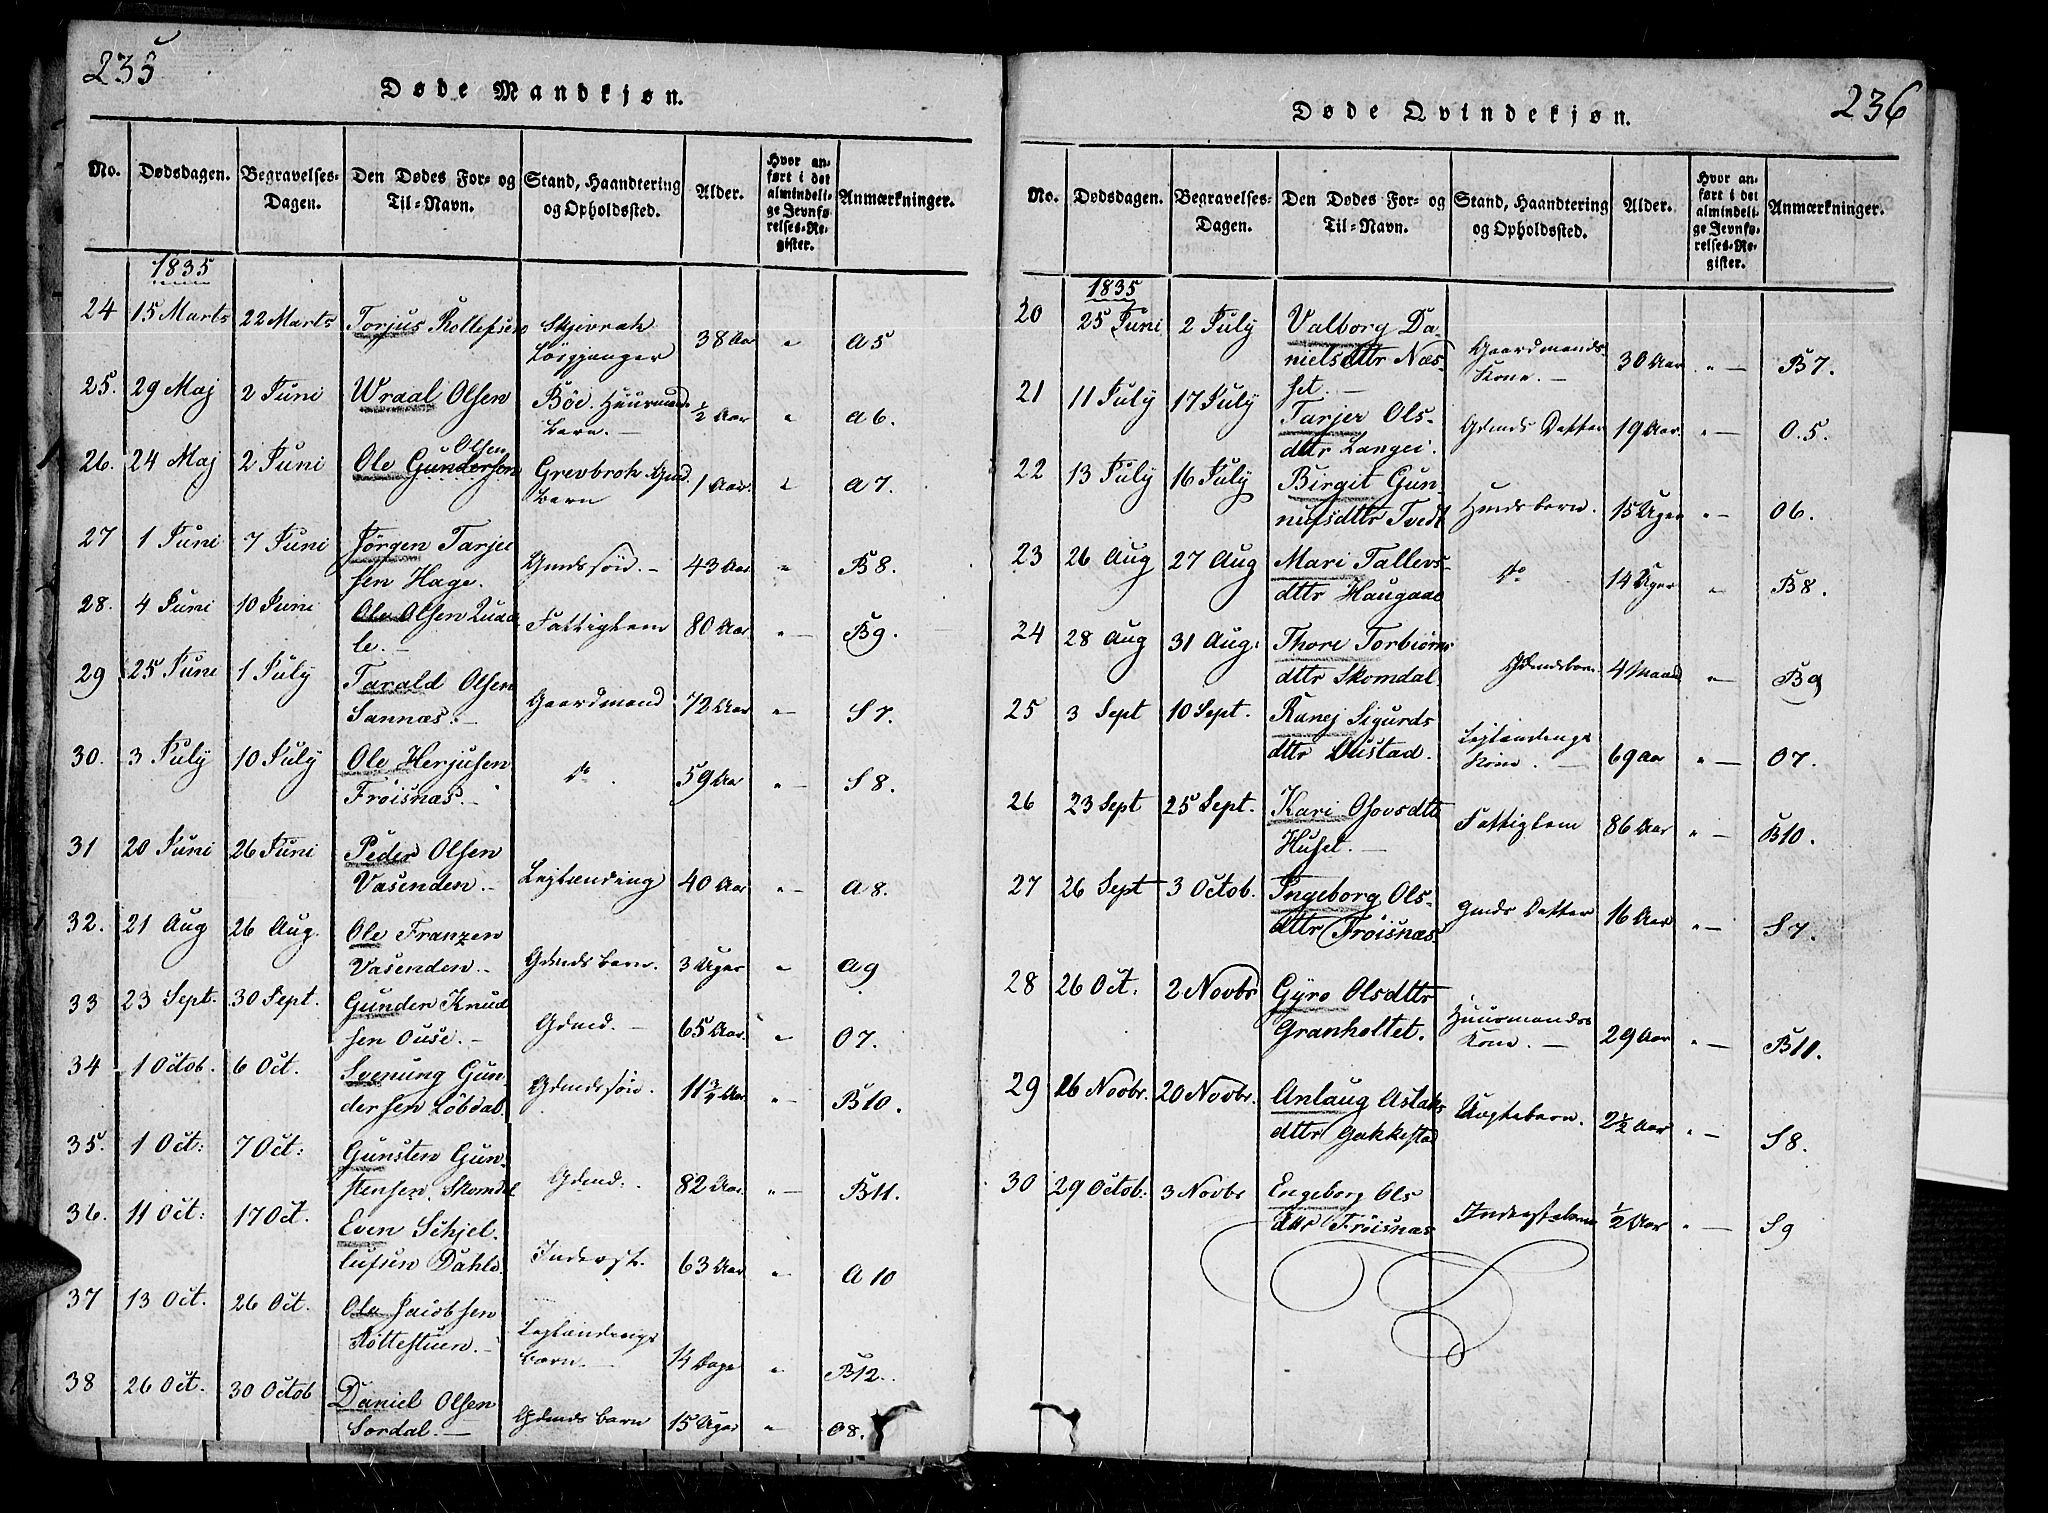 235
Døde Mandkjøn.
No. Dødsdagen. Begravelses-Dagen. Den Dødes For- og Til-Navn. Stand, Haandtering og Opholdssted. Alder. Hvor anført i det almindelige Jevnførelses-Register. Anmærkninger.
1835
24 15 Marts 22 Marts Torjus Rollefsen Skjevrak Løsgjænger 38 Aar " A 5
25. 29 Maj 2 Juni Wraal Olsen Böe. Huusmands Barn. ½ Aar " A 6.
26. 24 Maj 2 Juni Ole Gundersen Olsen Grevbrok Barn 1 Aar. " A 7.
27 1 Juni 7 Juni Jörgen Tarjei
sen Hage. Gmdssön. 43 Aar " B 8.
28. 4 Juni 10 Juni Ole Olsen Quaa
le. Fattiglem 80 Aar " B 9.
29 25 Juni 1 July Tarald Olsen
Sannæs. Gaardmand 72 Aar " S 7.
30. 3 July 10 July Ole Herjusen
Fröisnæs. do 59 Aar " S 8.
31 20 Juni 26 Juni Peder Olsen
Vasenden. Lejlænding 40 Aar " A 8.
32. 21 Aug 26 Aug. Ole Franzen
Vasenden. Gdmds barn. 3 Uger " A 9
33 23 Sept. 30 Sept. Gunder Knud
sen Ouse. Gdmd. 65 Aar. " O 7.
34 1 Octob. 6 Oct. Svenung Gun-
dersen Löbdal. Gdmdssön. 11¾ Aar " B 10.
35. 1 Oct: 7 Oct: Gunsten Gun-
stensen. Skomdal Gdmd. 82 Aar. " B 11.
36. 11 Oct: 17 Oct. Even Schjel-
lufsen Dahle. Inderst. 63 Aar " A 10
37 13 Oct. 26 Oct. Ole Jacobsen
Röttestuen. Lejlændings barn. 14 Dage " B 12.
38 26 Oct. 30 Octob Daniel Olsen
Sordal. Gdmds barn 15 Uger " O 8.
236
Døde Qvindekjøn.
No. Dødsdagen. Begravelses-Dagen. Den Dødes For- og Til-Navn. Stand, Haandtering og Opholdssted. Alder. Hvor anført i det almindelige Jevnførelses-Register. Anmærkninger.
1835
20 25 Juni 2 July Valborg Da-
nielsdttr Næs-
set. Gaardmands-Kone. 30 Aar. " B 7.
21 11 July 17 July Tarjer Ols-
dttr Langei. Gdmds Datter 19 Aar. " O. 5.
22 13 July 16 July Birgit Gun-
nufsdttr Tvedt Hmds barn. 15 Uger " O 6.
23 26 Aug 27 Aug Mari Tallevs-
dttr Haugaae do 14 Uger " B 8.
24 28 Aug 31 Aug. Thore Torbiörns
dttr Skomdal. Gdmdsbarn. 4 Maan " B 9
25 3 Sept 10 Sept. Ranej Sigurds
dttr Oustad. Lejlændings Kone. 69 Aar " O 7.
26 23 Sept 25 Sept. Kari Osovsdttr
Huset. Fattiglem 86 Aar " B 10.
27 26 Sept 3 Octob. Ingeborg Ols-
dttr Fröisnæs. Gmds Datter 16 Aar " S 7.
28 26 Oct. 2 Novbr Gyro Olsdttr
Granholtet. Huusmands Kone. 29 Aar " B 11.
29 16 Novbr. 20 Novbr. Anlaug Astaks
dttr Gakkestad Uægtebarn. 2½ Aar " S 8.
30 29 Octob. 3 Novbr Engeborg Ols
dttr Fröisnæs Inderstebarn ½ Aar " S 9